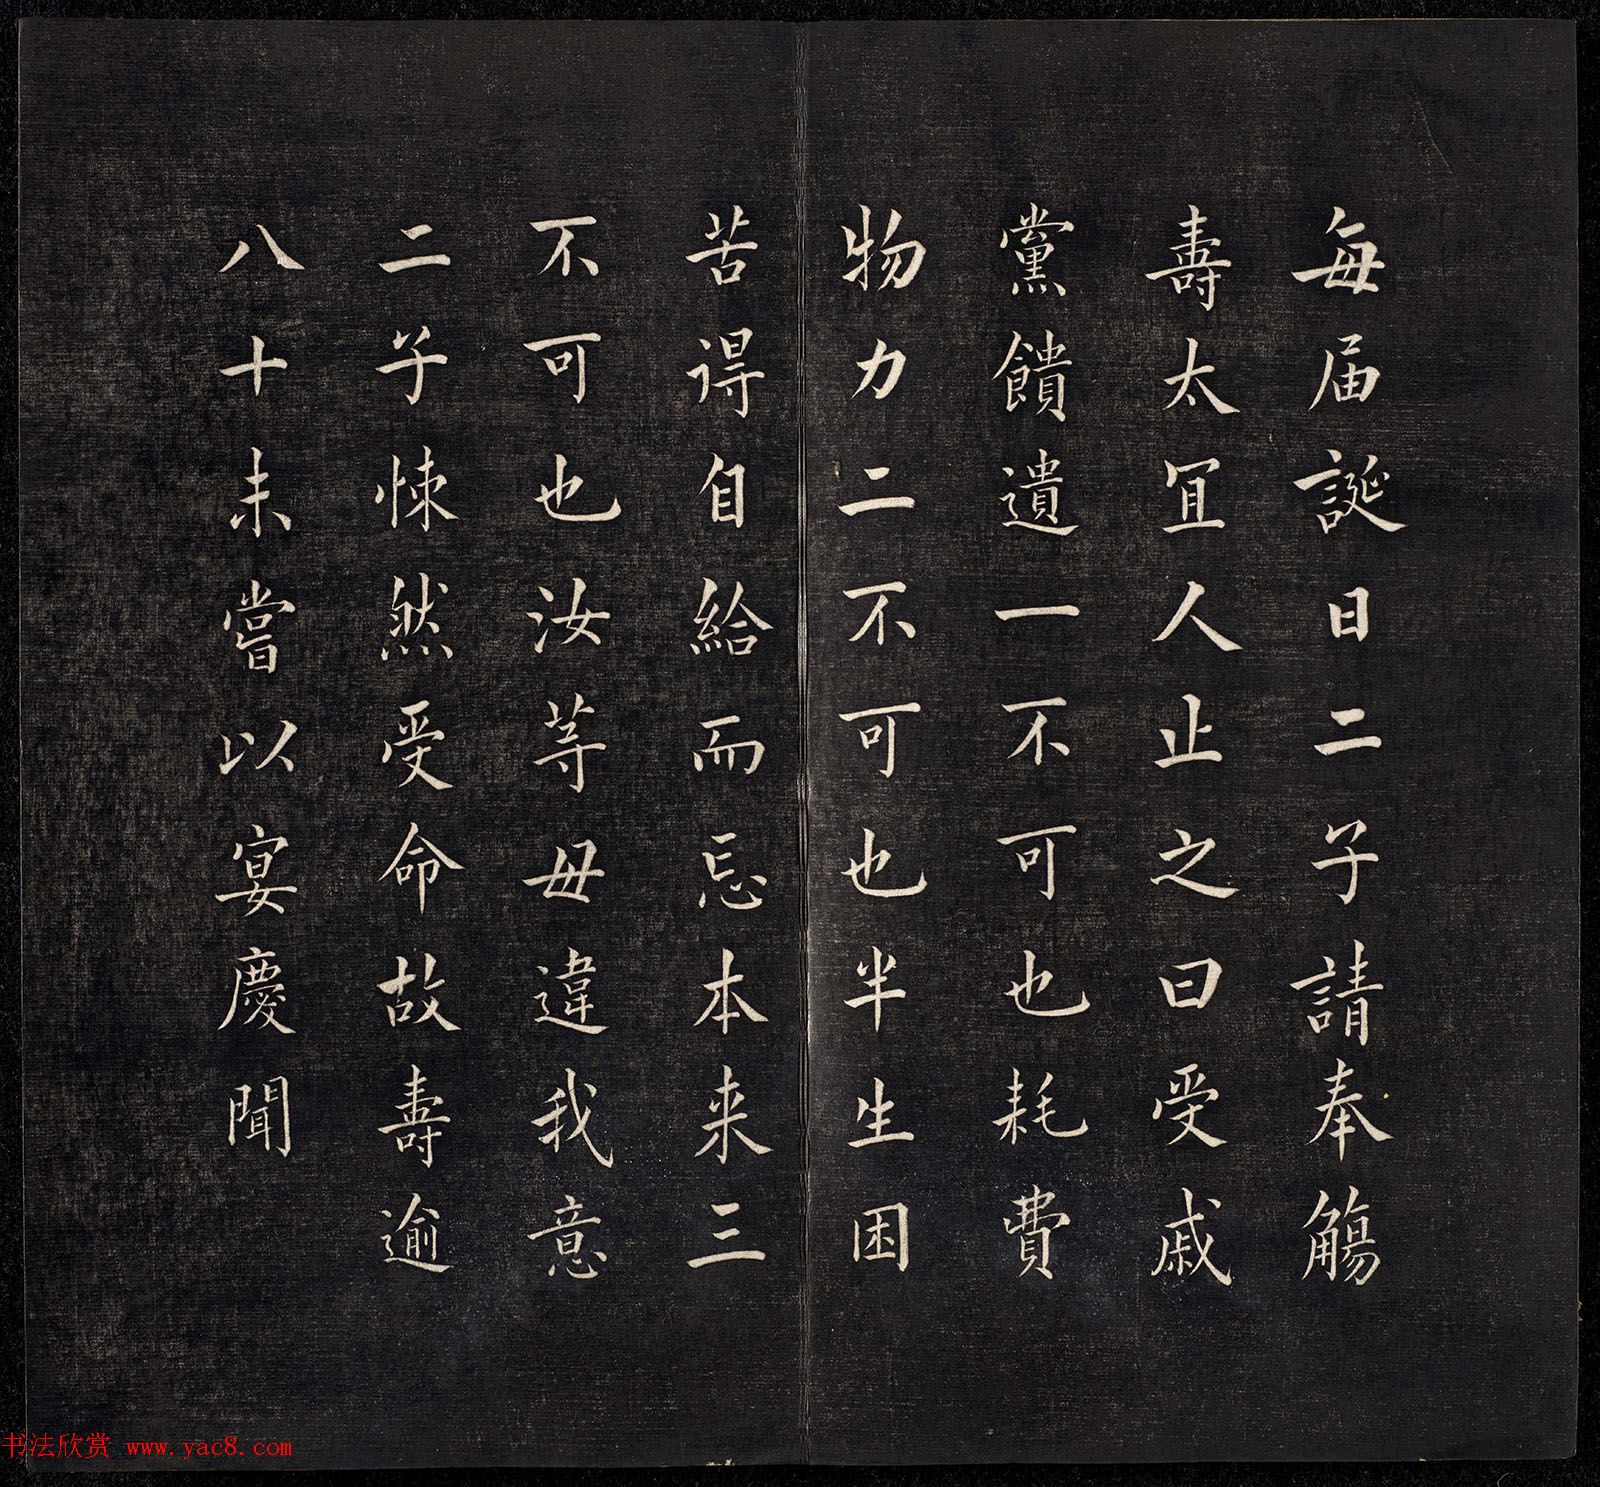 每届誕日二子請奉觴
壽太冝人止之曰受戚
黨饋遺一不可也耗費
物力二不可也半生困
苦得自給而忘本来三
不可也汝等毋違我意
二子悚然受命故壽逾
八十未嘗以宴慶聞
书法欣赏 www.yac8.com